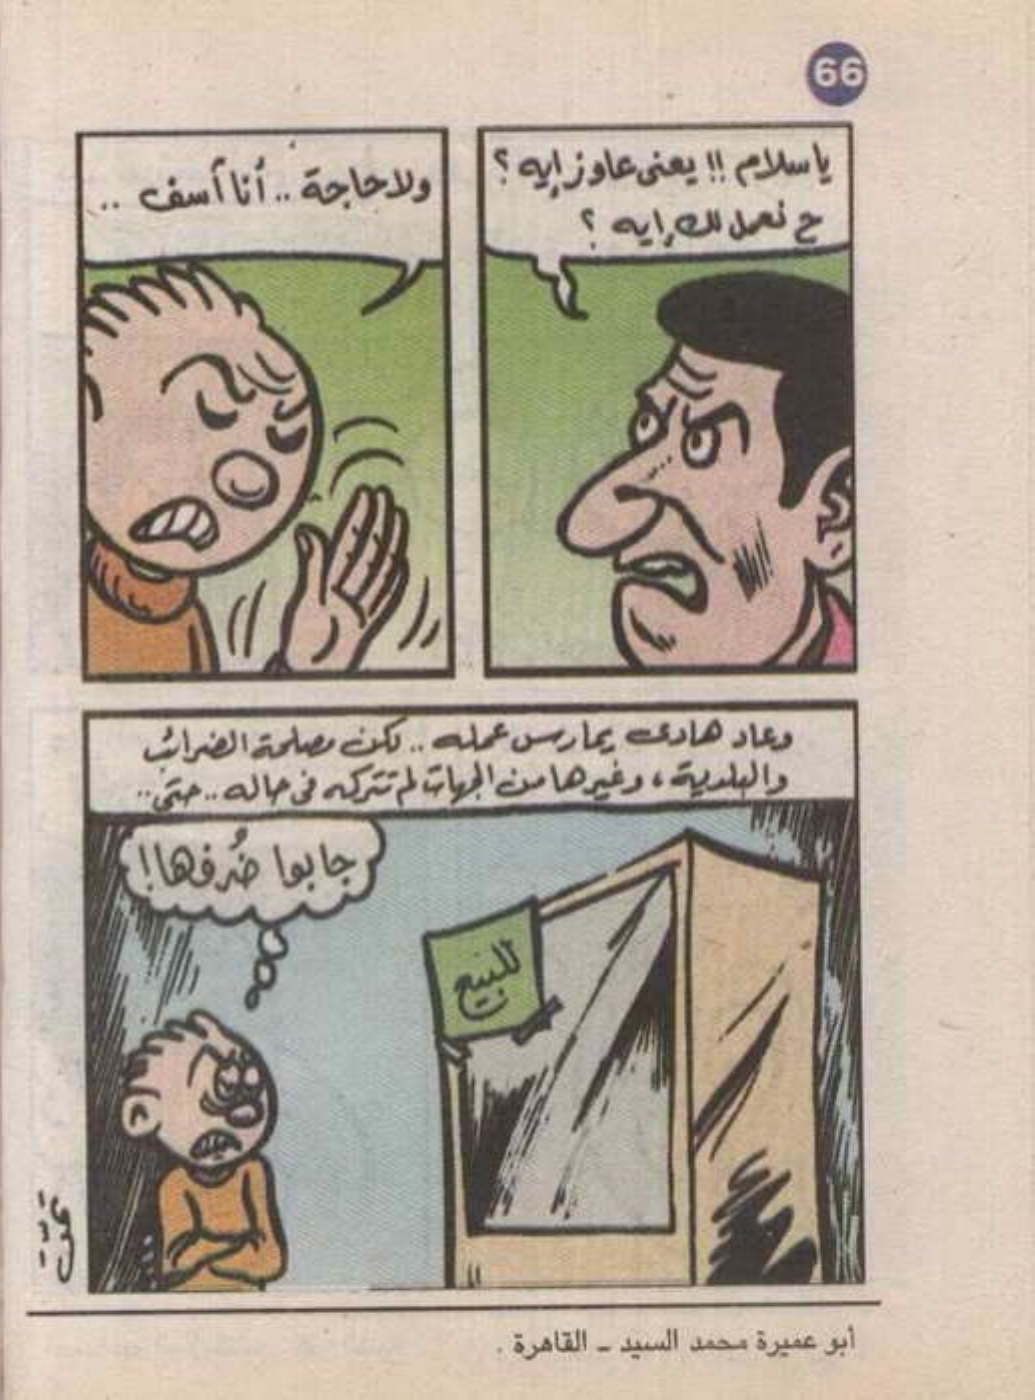 66
ياسلام !! يعنى عاوز إيه ؟
ح نعمل لك إيه ؟
ولا حاجة .. أنا آسف ..
وعاد هادى يمارس عمله .. لكن مصلحة الضرائب
والبلدية ، وغيرها من الجهات لم تتركه فى حاله .. حتى ..
جابوا ضُرفها !
للبيع
أبو عميرة محمد السيد - القاهرة .